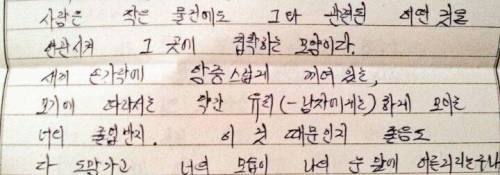 사람은 작은 물건에도 그와 관련된 어떤 것을
연관시켜 그 곳에 집착하는 모양이다.
새끼 손가락에 앙증스럽게 끼여 있는,
보기에 따라서는 약간 유치(-남자에게는)하게 보이는
너의 졸업반지. 이 것 때문인지 졸음도
다 도망가고 너의 모습이 나의 눈 앞에 어른거리는구나